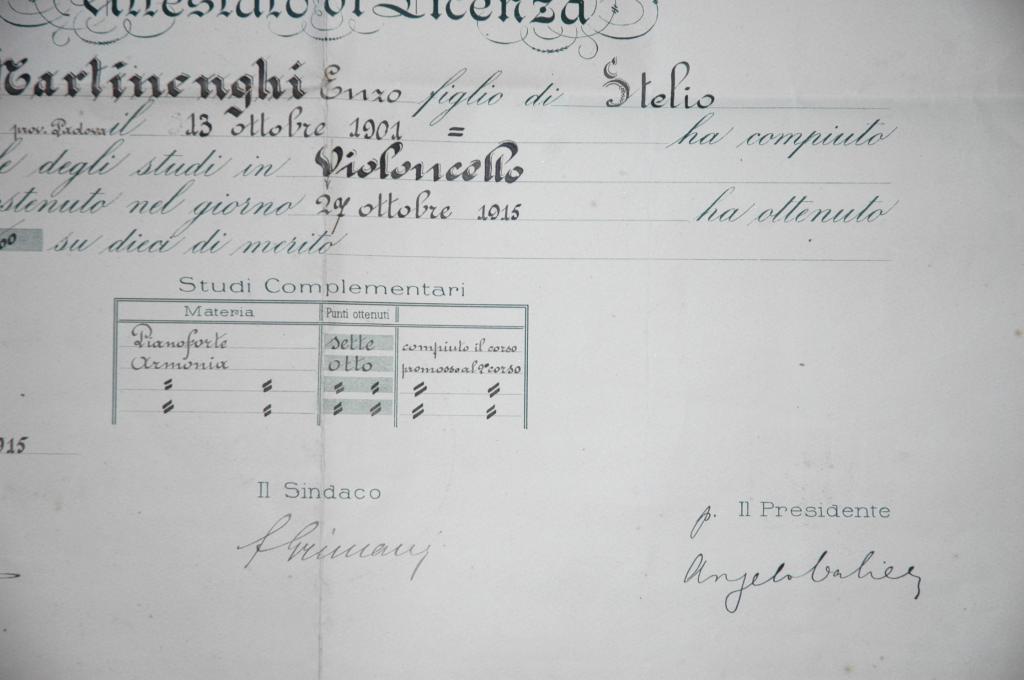 Attestato di Licenza
Martinenghi Enzo figlio di Stelio
prov. Padova il 13 ottobre 1901 = ha compiuto
degli studi in Violoncello
nel giorno 27 ottobre 1915 ha ottenuto
su dieci di merito
Studi Complementari
Materia Punti ottenuti
Pianoforte sette compiuto il corso
Armonia otto promosso al 2º corso
〃 〃 〃 〃 〃 〃
〃 〃 〃 〃 〃 〃
915
Il Sindaco
p. Il Presidente
f Grimani
Angelo Valier